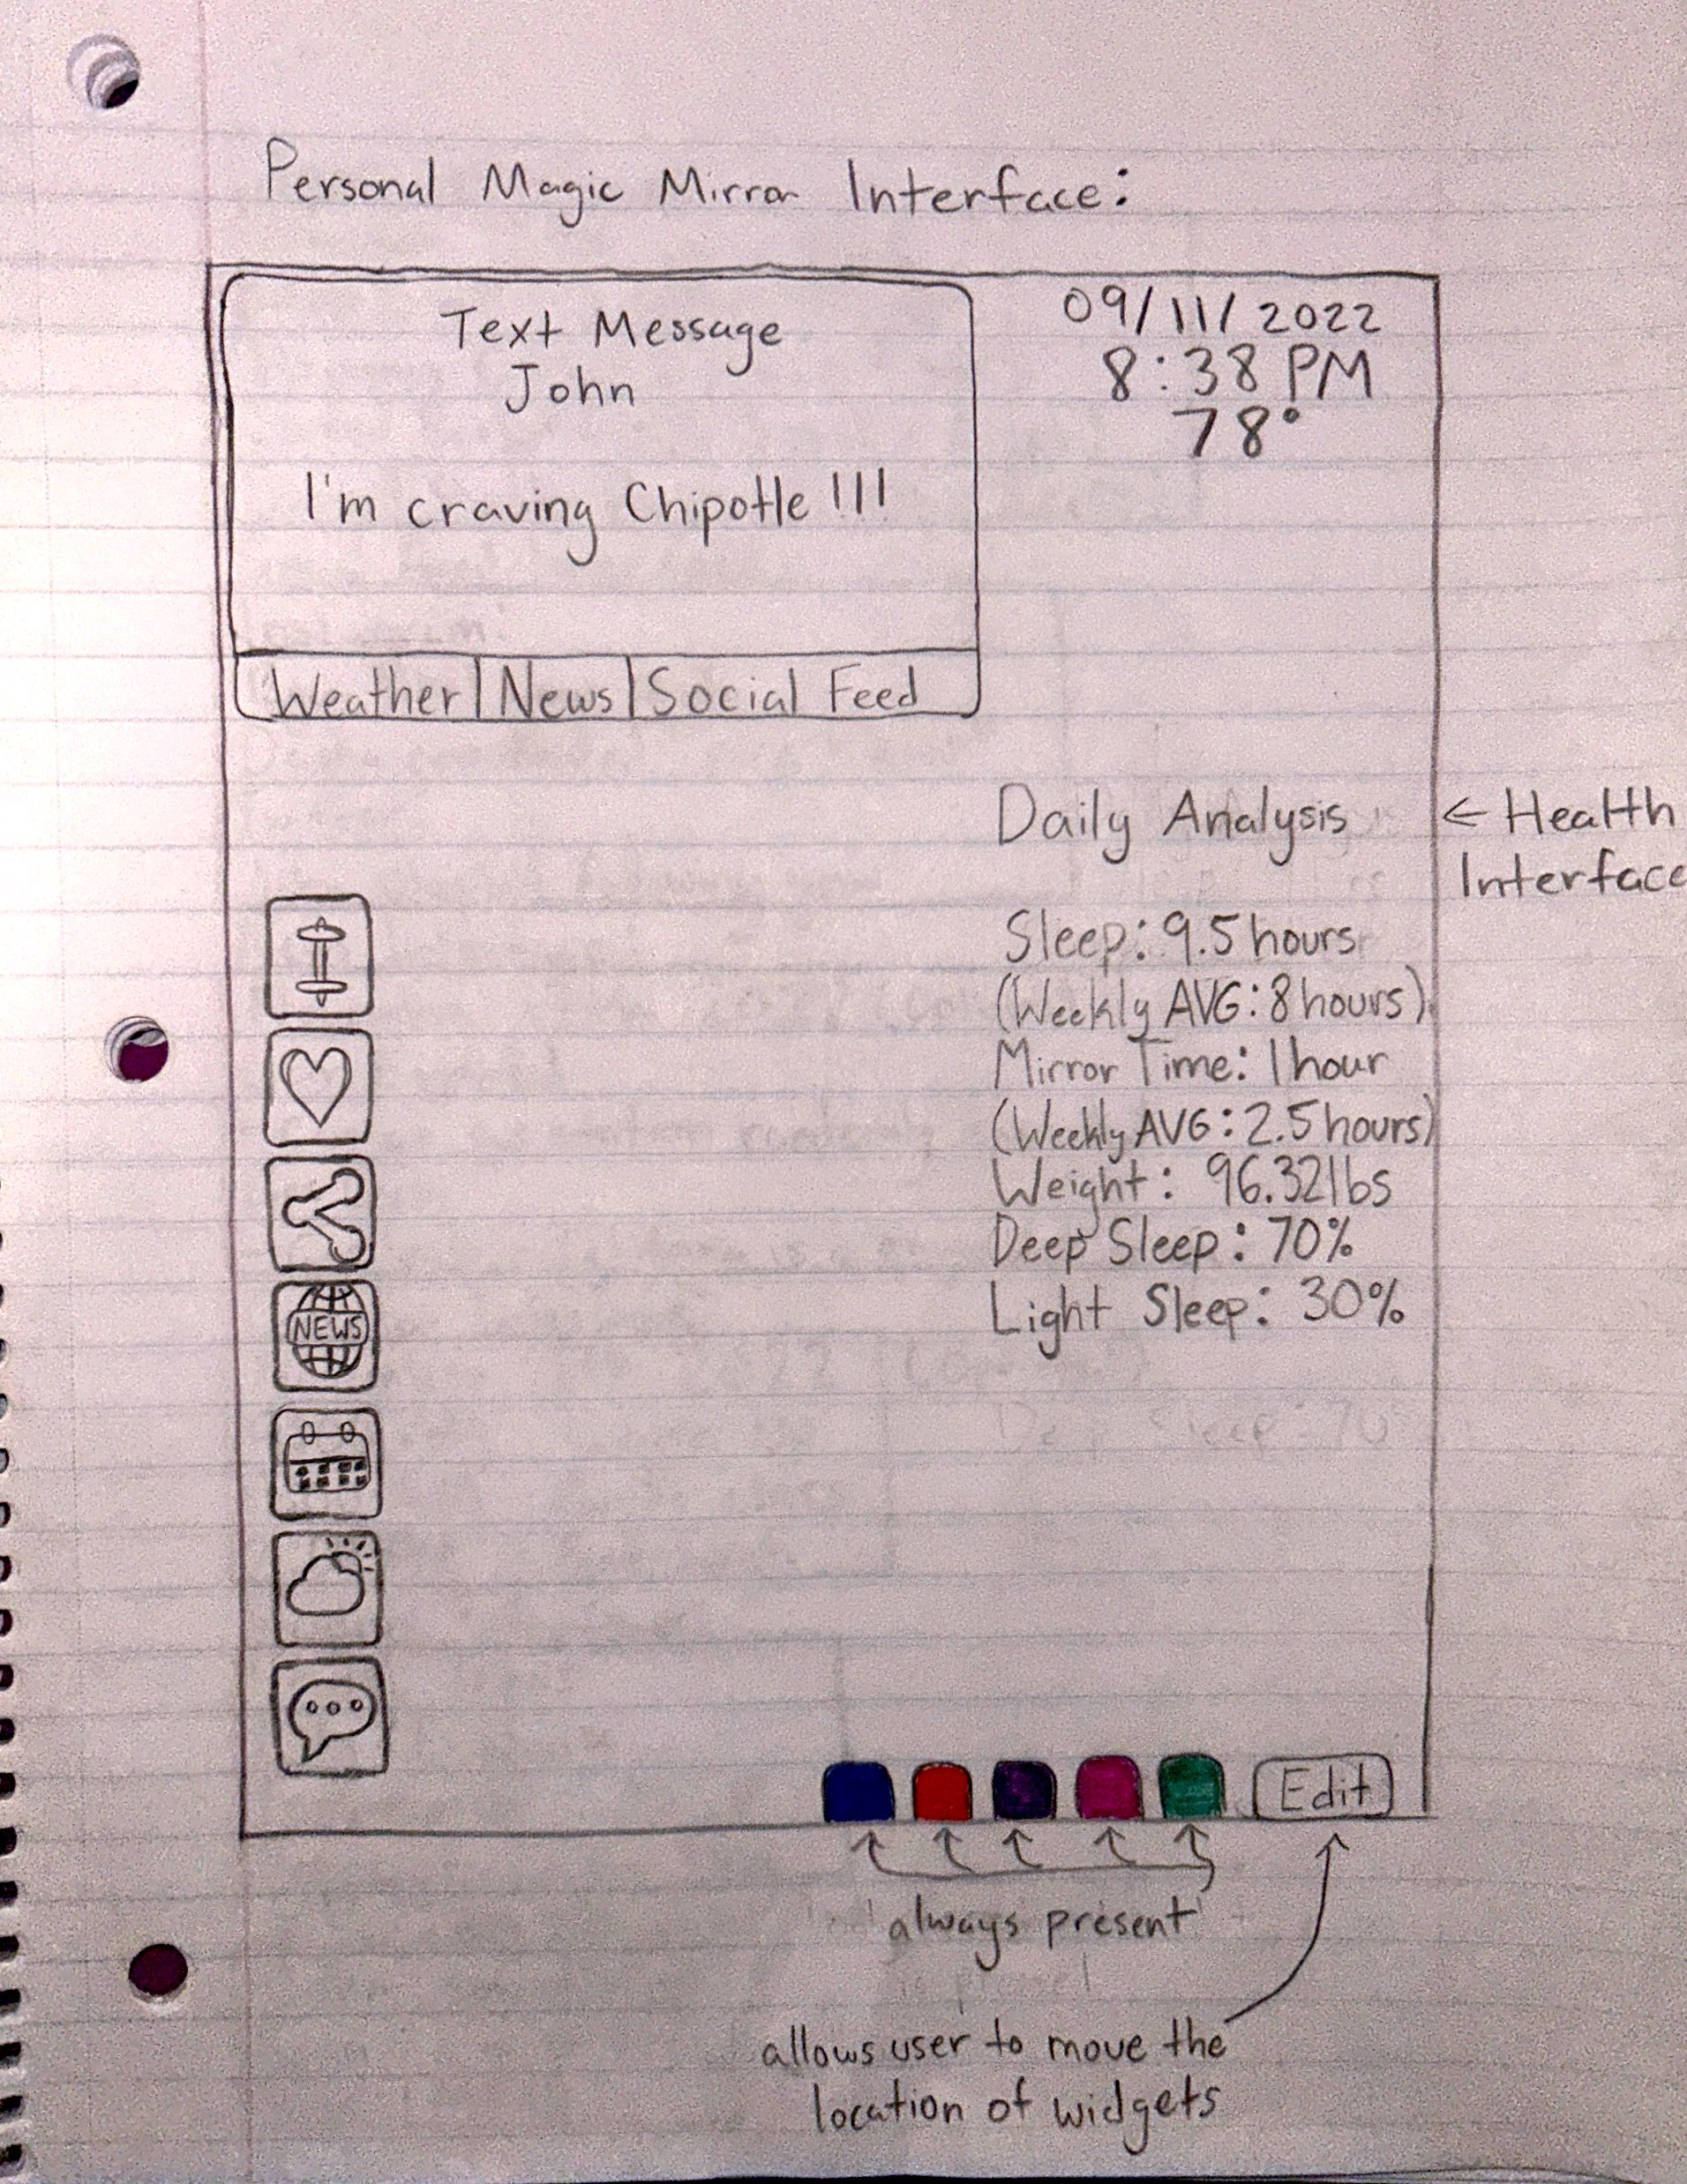 Personal Magic Mirror Interface:
Text Message
John
I'm craving Chipotle !!!
Weather | News | Social Feed
09/11/2022
8:38 PM
78°
Daily Analysis
← Health
Interface
Sleep: 9.5 hours
(Weekly AVG: 8 hours)
Mirror Time: 1 hour
(Weekly AVG: 2.5 hours)
Weight: 96.32lbs
Deep Sleep: 70%
Light Sleep: 30%
NEWS
Edit
always present
allows user to move the
location of widgets